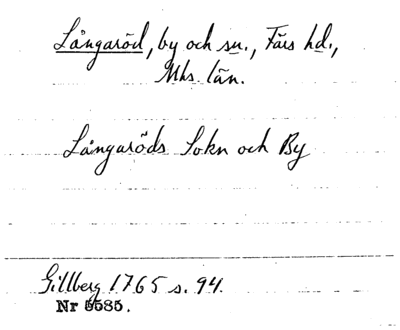 Långaröd, by och sn., Färs hd.,
Mhs. län.
Långaröds Sokn och By
Gillberg 1765 s. 94.
Nr 5585.